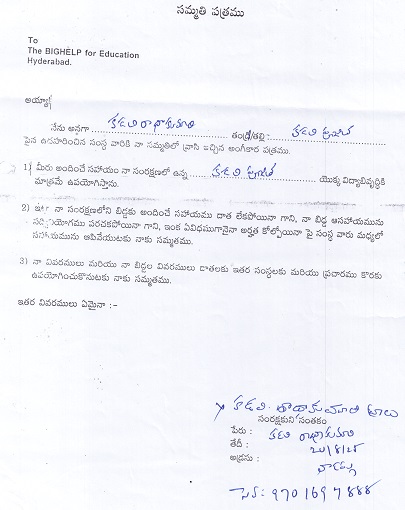 సమ్మతి పత్రము
To
The BIGHELP for Education
Hyderabad.
అయ్యా!
నేను అనగా కడలి రాధాకుమారి తండ్రి/తల్లి:- కడలి
పైన ఉదహరించిన సంస్థ వారికి నా సమ్మతిలో వ్రాసి ఇచ్చిన అంగీకార పత్రము.
1) మీరు అందించే సహాయం నా సంరక్షణలో ఉన్న కడలి యొక్క విద్యాభివృద్ధికి
మాత్రమే ఉపయోగిస్తాను.
2) నా సంరక్షణలోని బిడ్డకు అందించే సహాయము దాత లేకపోయినా గాని, నా బిడ్డ ఆసహాయమును
పరచకపోయినా గాని, ఇంక ఏవిధముగానైనా అర్హత కోల్పోయినా పై సంస్థ వారు మధ్యలో
సహాయమును ఆపివేయుటకు నాకు సమ్మతము.
3) నా వివరములు మరియు నా బిడ్డల వివరములు దాతలకు ఇతర సంస్థలకు మరియు ప్రచారము కొరకు
ఉపయోగించుకొనుటకు నాకు సమ్మతము.
ఇతర వివరములు ఏమైనా :-
కడలి
సంరక్షకుని సంతకం
పేరు : కడలి రాధాకుమారి
తేదీ :
అడ్రసు :
సెల్: 9701697888